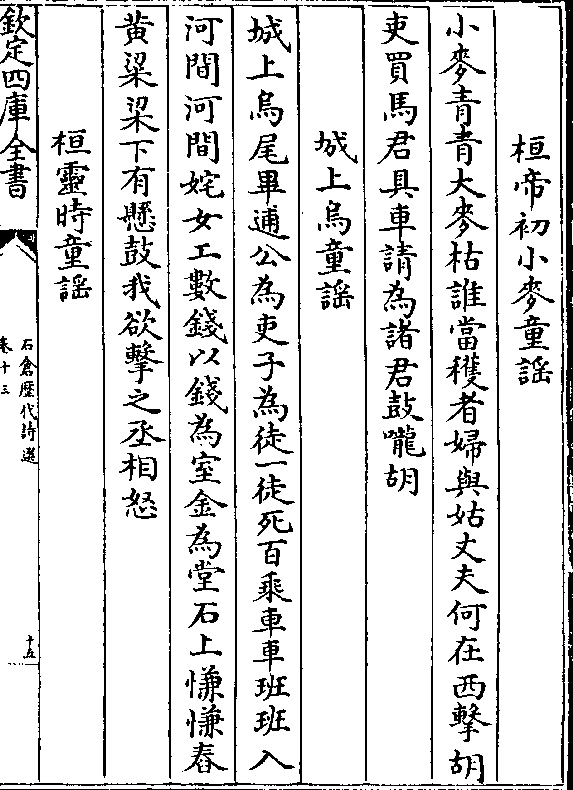 桓帝初小麥童謡
小麥青青大麥枯誰當穫者婦與姑丈夫何在西擊胡
吏買馬君具車請為諸君鼓嚨胡
城上烏童謡
城上烏尾畢逋公為吏子為徒一徒死百乘車車班班入
河間河間姹女工數錢以錢為室金為堂石上慊慊舂
黄粱梁下有懸鼓我欲擊之丞相怒
桓靈時童謡
欽定四庫全書
石倉歴代詩選
卷十三
十五